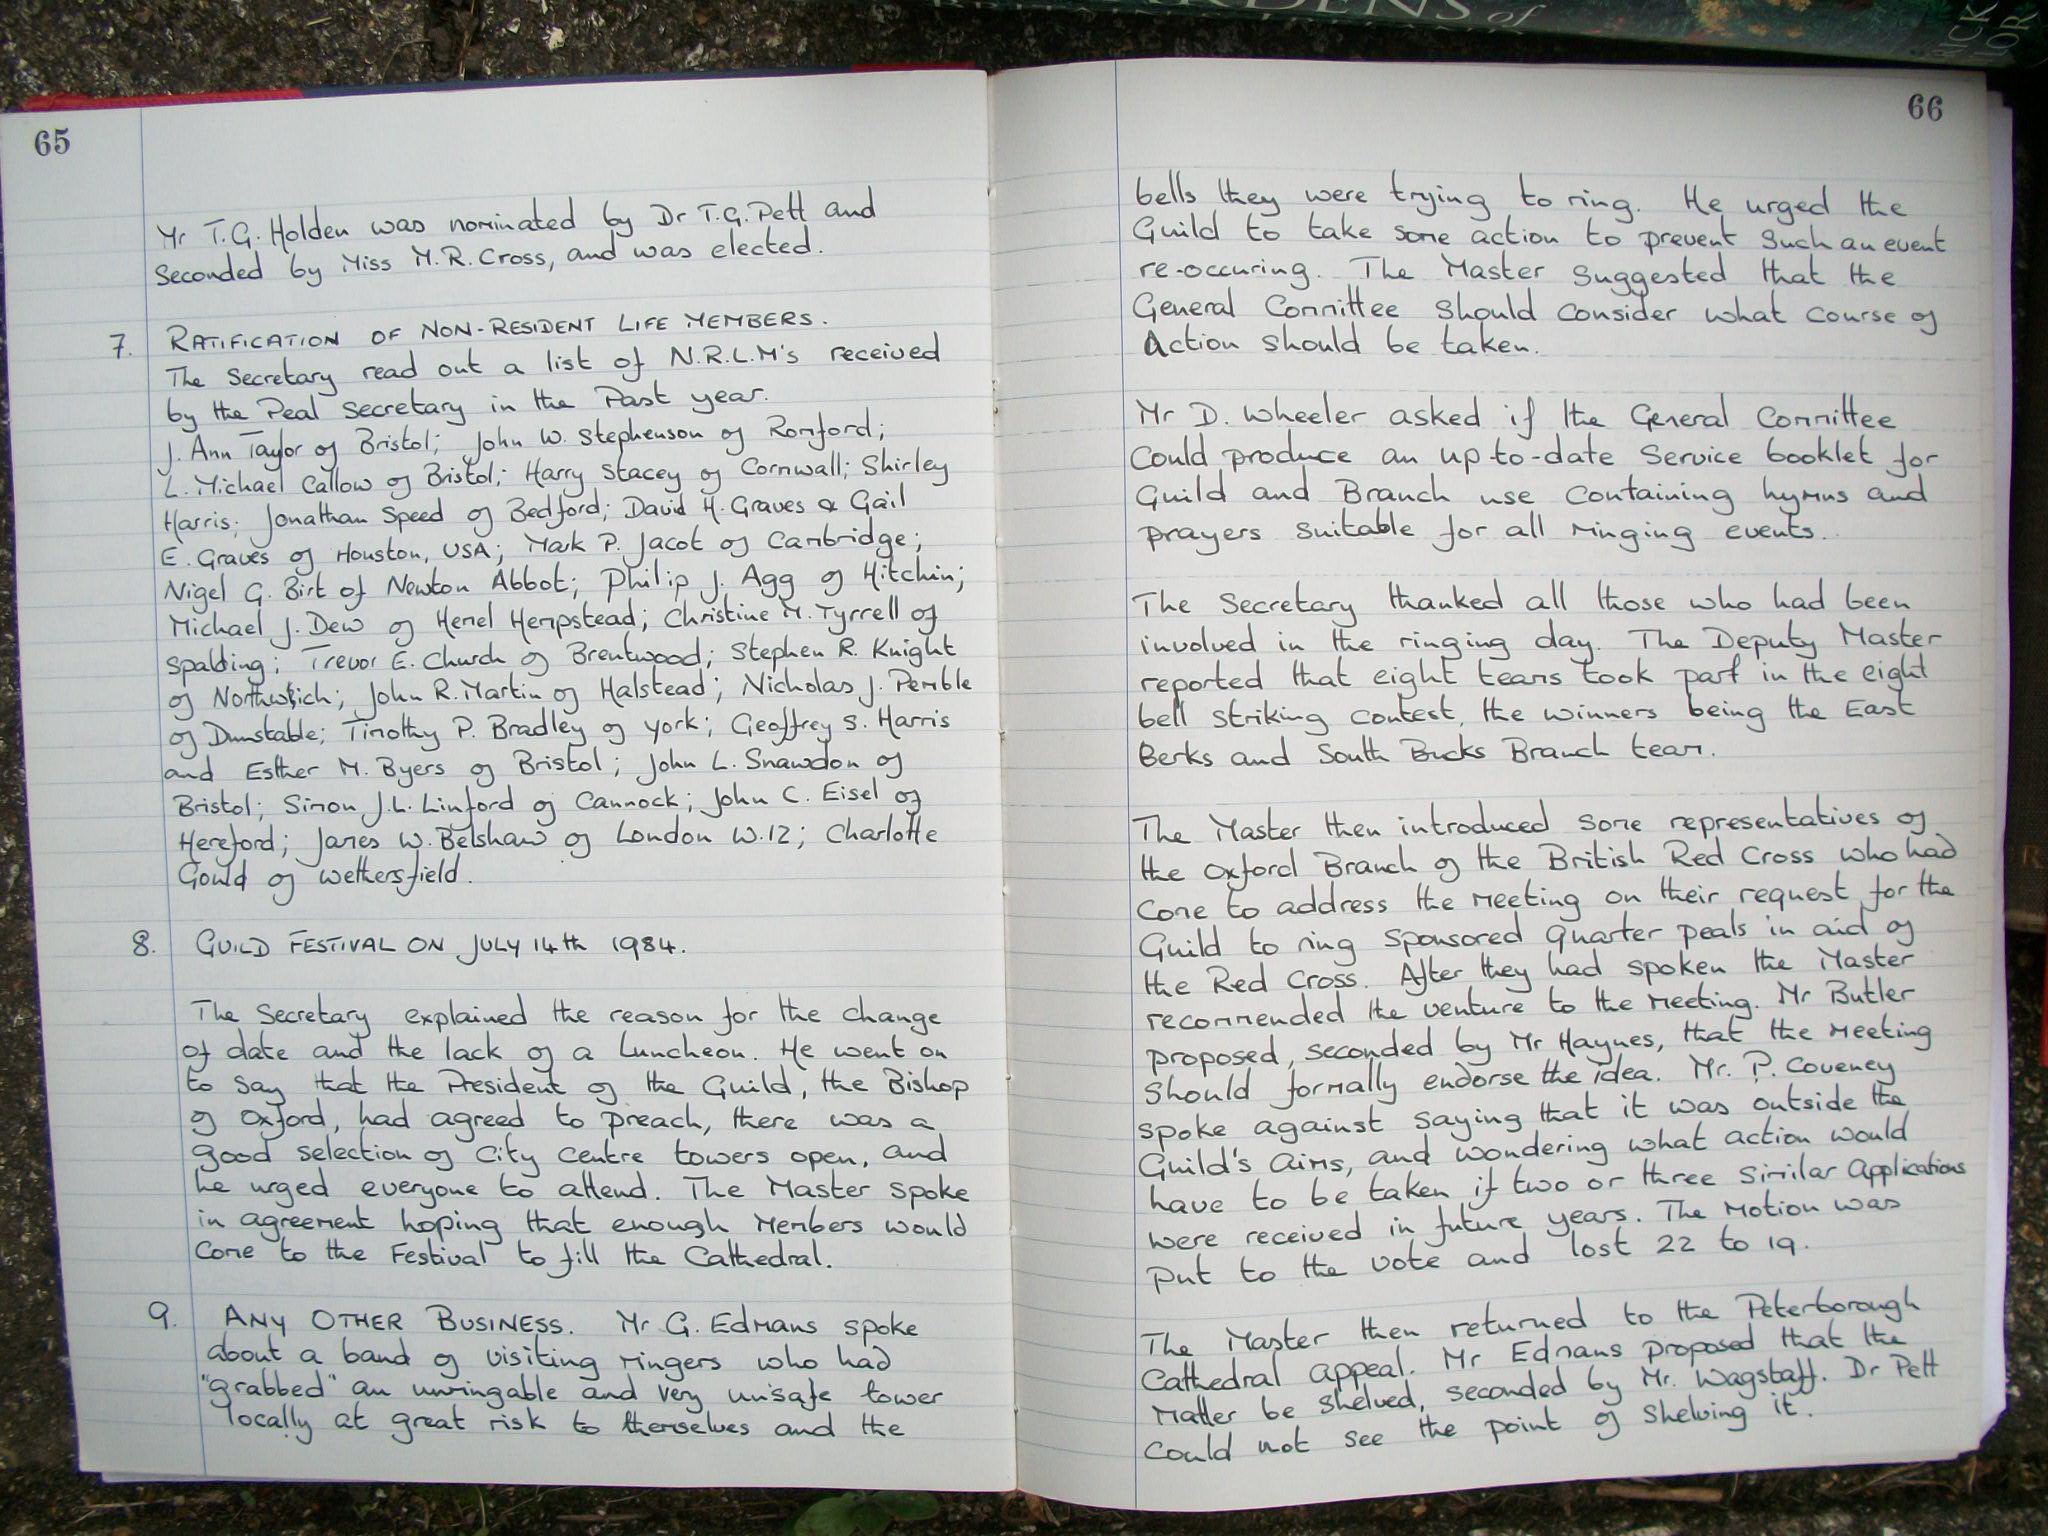 RDENS of
65
Mr T.G. Holden was nominated by Dr T.G. Pett and
Seconded by Miss M.R. Cross, and was elected.
7. RATIFICATION OF NON-RESIDENT LIFE MEMBERS.
The Secretary read out a list of N.R.L.M's received
by the Peal Secretary in the Past year.
J. Ann Taylor of Bristol; John W. Stephenson of Romford;
L. Michael Callow of Bristol; Harry Stacey of Cornwall; Shirley
Harris; Jonathan Speed of Bedford; David H. Graves & Gail
E. Graves of Houston, USA; Mark P. Jacot of Cambridge;
Nigel G. Birt of Newton Abbot; Philip J. Agg of Hitchin;
Michael J. Dew of Hemel Hempstead; Christine M. Tyrrell of
Spalding; Trevor E. Church of Brentwood; Stephen R. Knight
of Northwich; John R. Martin of Halstead; Nicholas J. Pemble
of Dunstable; Timothy P. Bradley of York; Geoffrey S. Harris
and Esther M. Byers of Bristol; John L. Snawdon of
Bristol; Simon J.L. Linford of Cannock; John C. Eisel of
Hereford; James W. Belshaw of London W.12; Charlotte
Gould of Wethersfield.
8. GUILD FESTIVAL ON JULY 14th 1984.
The Secretary explained the reason for the change
of date and the lack of a Luncheon. He went on
to say that the President of the Guild, the Bishop
of Oxford, had agreed to preach, there was a
good selection of City Centre towers open, and
he urged everyone to attend. The Master spoke
in agreement hoping that enough Members would
come to the Festival to fill the Cathedral.
9. ANY OTHER BUSINESS. Mr G. Edmans spoke
about a band of visiting ringers who had
"grabbed" an unringable and very unsafe tower
locally at great risk to themselves and the
66
bells they were trying to ring. He urged the
Guild to take some action to prevent such an event
re-occuring. The Master suggested that the
General Committee should consider what course of
Action should be taken.
Mr D. Wheeler asked if the General Committee
could produce an up-to-date Service booklet for
Guild and Branch use containing hymns and
prayers suitable for all ringing events.
The Secretary thanked all those who had been
involved in the ringing day. The Deputy Master
reported that eight teams took part in the eight
bell striking contest, the winners being the East
Berks and South Bucks Branch team.
The Master then introduced some representatives of
the Oxford Branch of the British Red Cross who had
come to address the meeting on their request for the
Guild to ring sponsored quarter peals in aid of
the Red Cross. After they had spoken the Master
recommended the venture to the meeting. Mr Butler
proposed, seconded by Mr Haynes, that the meeting
should formally endorse the idea. Mr. P. Coveney
spoke against saying that it was outside the
Guild's aims, and wondering what action would
have to be taken if two or three similar applications
were received in future years. The Motion was
put to the vote and lost 22 to 19.
The Master then returned to the Peterborough
Cathedral appeal. Mr Edmans proposed that the
Matter be shelved, seconded by Mr. Wagstaff. Dr Pett
could not see the point of shelving it.